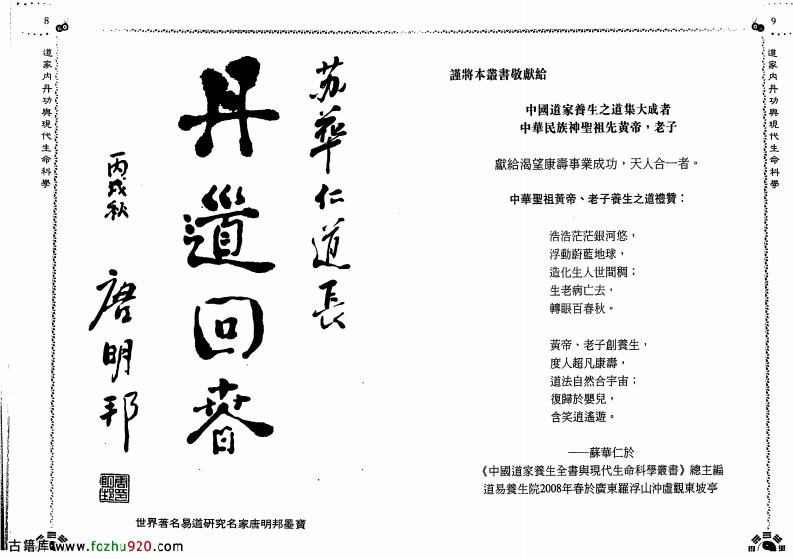 8
道家內丹功與現代生命科學
苏華仁道長
丹道回春
丙戌秋
唐明邦
世界著名易道研究名家唐明邦墨寶
古籍库 www.fozhu920.com
9
道家內丹功與現代生命科學
謹將本叢書敬獻給
中國道家養生之道集大成者
中華民族神聖祖先黃帝，老子
獻給渴望康壽事業成功，天人合一者。
中華聖祖黃帝、老子養生之道禮贊：
浩浩茫茫銀河悠，
浮動蔚藍地球，
造化生人世間稠；
生老病亡去，
轉眼百春秋。
黃帝、老子創養生，
度人超凡康壽，
道法自然合宇宙；
復歸於嬰兒，
含笑逍遙遊。
——蘇華仁於
《中國道家養生全書與現代生命科學叢書》總主編
道易養生院2008年春於廣東羅浮山沖虛觀東坡亭